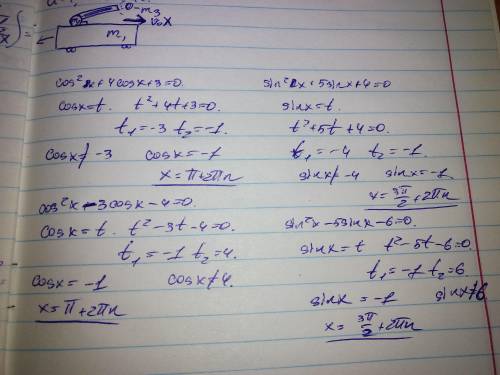 m₃
V₀ X
m₁
cos²x+4cosx+3=0.
cosx=t. t²+4t+3=0.
t₁=-3 t₂=-1.
cosx≠-3 cosx=-1
x=π+2πn
cos²x-3cosx-4=0.
cosx=t. t²-3t-4=0.
t₁=-1 t₂=4.
cosx=-1 cosx≠4.
x=π+2πn
sin²x+5sinx+4=0
sinx=t.
t²+5t+4=0.
t₁=-4 t₂=-1.
sinx≠-4 sinx=-1
x=3π/2+2πn
sin²x-5sinx-6=0.
sinx=t t²-5t-6=0
t₁=-1 t₂=6.
sinx=-1 sinx≠6.
x=3π/2+2πn